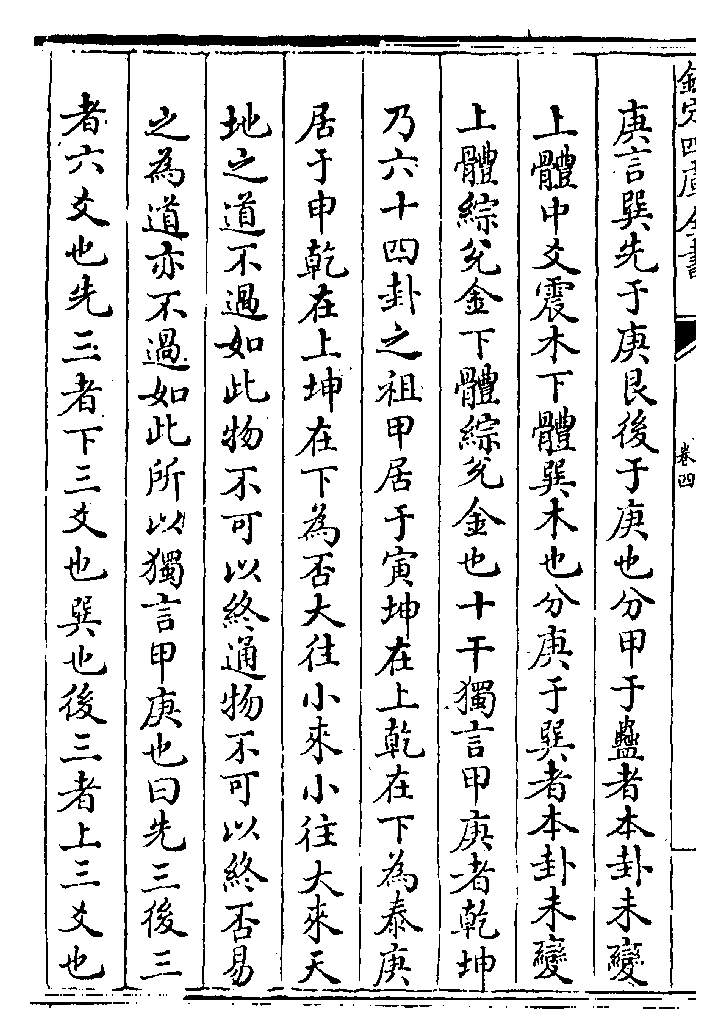 欽定四庫全書
卷四
庚言巽先于庚艮後于庚也分甲于蠱者本卦未變
上體中爻震木下體巽木也分庚于巽者本卦未變
上體綜兊金下體綜兊金也十干獨言甲庚者乾坤
乃六十四卦之祖甲居于寅坤在上乾在下為泰庚
居于申乾在上坤在下為否大往小來小往大來天
地之道不過如此物不可以終通物不可以終否易
之為道亦不過如此所以獨言甲庚也曰先三後三
者六爻也先三者下三爻也巽也後三者上三爻也